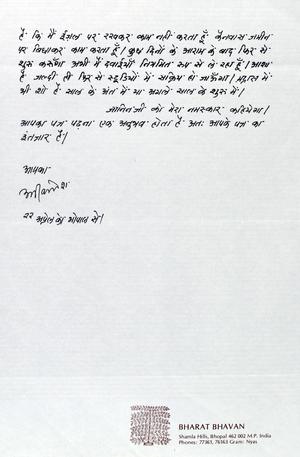 है: कि मैं ईज़ल पर रखकर काम नहीं करता हूँ कैनवास ज़मीन
पर बिछाकर काम करता हूँ। कुछ दिनों के आराम के बाद फिर से
शुरू करूँगा अभी मैं दवाईयाँ नियमित रूप से ले रहा हूँ। आशा
है जल्दी ही फिर से स्टूडियो में सक्रिय हो जाऊँगा। मद्रास में
भी शो है साल के अंत में या अगले साल के शुरू में।
जानिनजी को मेरा नमस्कार कहियेगा।
आपका पत्र पढ़ना एक अनुभव होता है अतः आपके पत्र का
इंतज़ार है।
आपका
२२ अप्रैल को भोपाल से।
BHARAT BHAVAN
Shamla Hills, Bhopal 462 002 M.P. India
Phones: 77361, 76163 Gram: Nyas